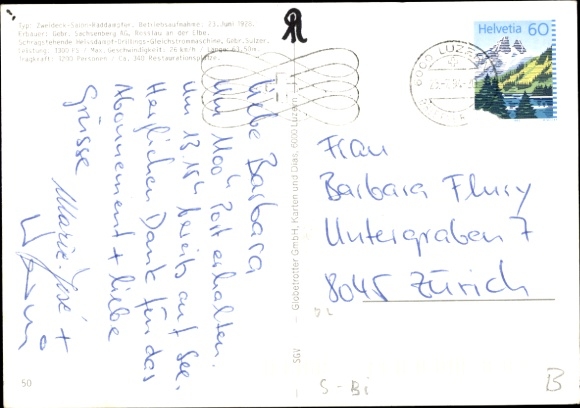 Typ: Zweideck-Salon-Raddampfer, Betriebsaufnahme, 23. Juni 1928.
Erbauer: Gebr. Sachsenberg AG, Rosslau an der Elbe.
Schrägstehende Heissdampf-Drillings-Gleichstrommaschine, Gebr. Sulzer.
Leistung: 1300 PS / Max. Geschwindigkeit: 26 km/h / Länge: 63,50m.
Tragkraft: 1200 Personen / Ca. 340 Restaurationsplätze.
Helvetia 60
6000 LUZERN
Liebe Barbara
Um 11ooh Post erhalten.
Um 13.15h bereits auf See.
Herzlichen Dank für das
Abonnement + liebe
Grüsse Marie-José +
Frau
Barbara Flury
Untergraben 7
8045 Zürich
SGV — Globetrotter GmbH, Karten und Dias, 6000 Luzern
50
S-Bi
B